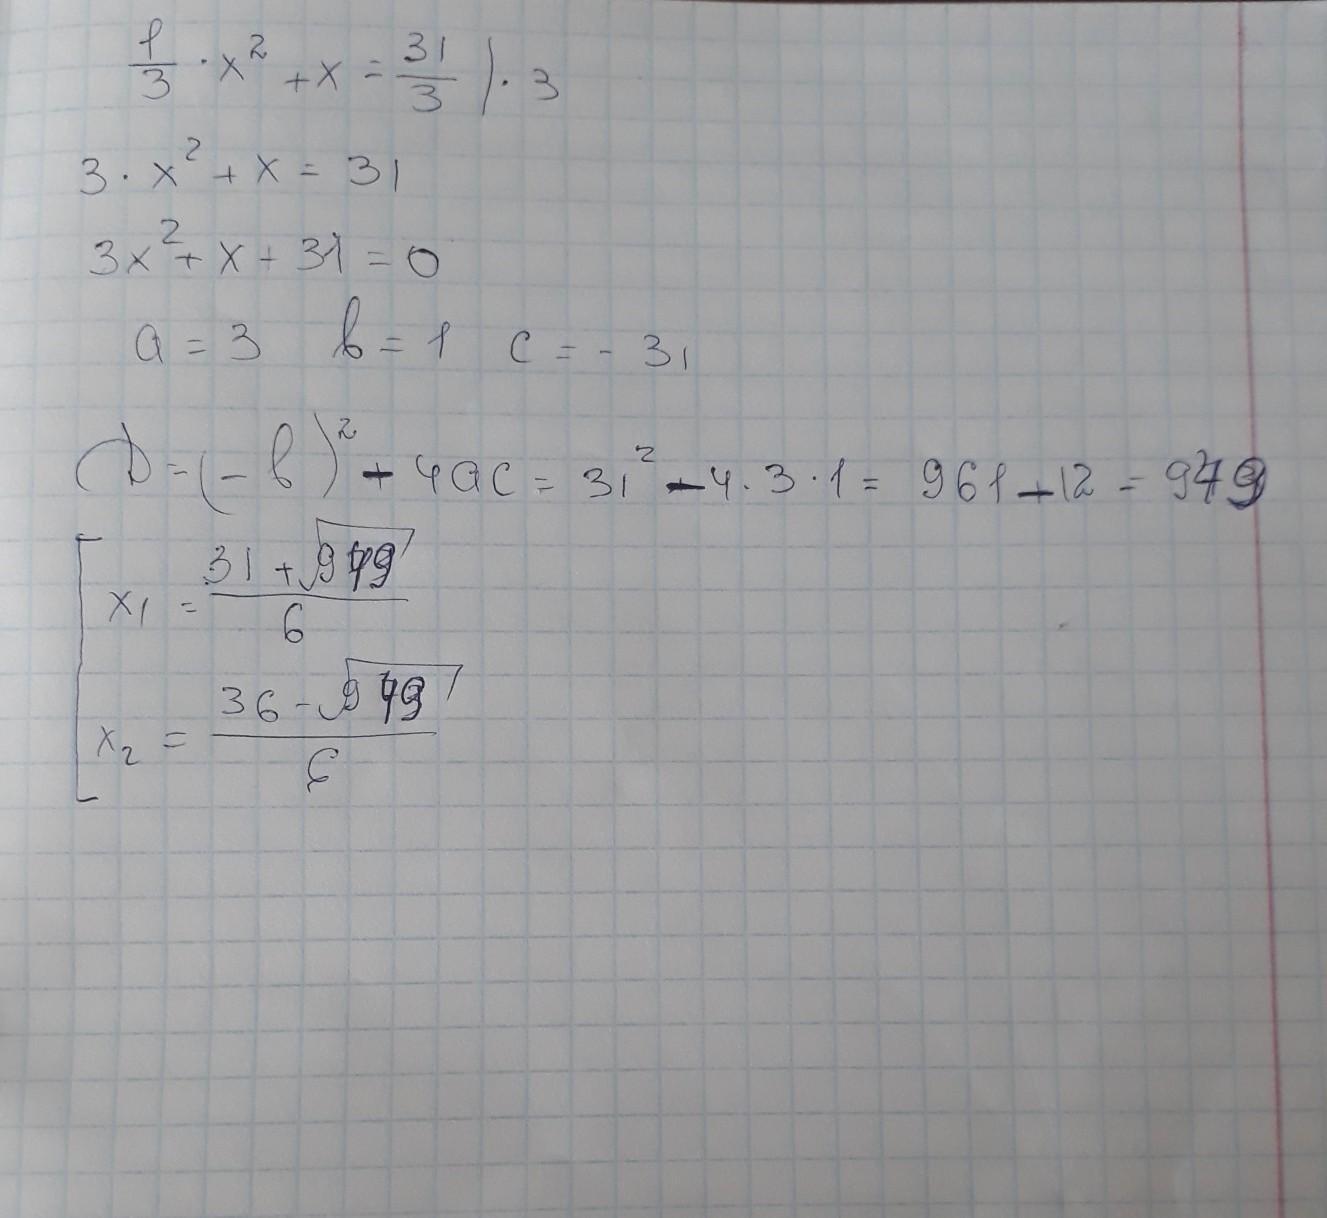 1/3 · x² + x = 31/3 | · 3
3 · x² + x = 31
3x² + x + 31 = 0
a = 3 b = 1 c = - 31
D = (- b)² - 4ac = 31² - 4 · 3 · 1 = 961 - 12 = 949
x₁ = (31 + √949)/6
x₂ = (36 - √949)/6